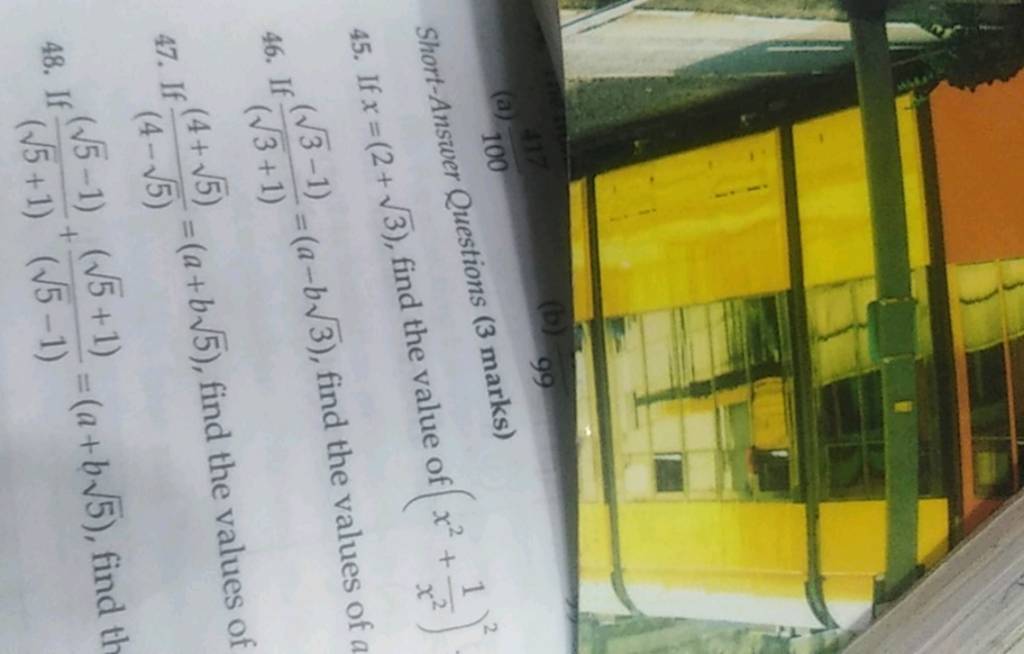 (a) 417/100 (b) /99
Short-Answer Questions (3 marks)
45. If x = (2 + √3), find the value of (x² + 1/x²)².
46. If (√3 - 1)/(√3 + 1) = (a - b√3), find the values of a
47. If (4 + √5)/(4 - √5) = (a + b√5), find the values of
48. If (√5 - 1)/(√5 + 1) + (√5 + 1)/(√5 - 1) = (a + b√5), find th